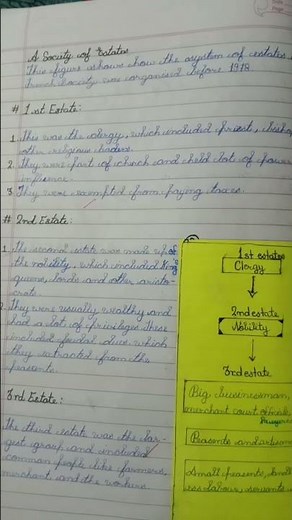 A Society of Estates
This figure shows how the system of estates in
french society was organised before 1978
# 1st Estate:
1. This was the clergy, which included priest, bishop
other religious leaders.
2. They were part of church and held lot of power
influence.
3. They were exempted from paying taxes.
# 2nd Estate:
1. The second estate was made up of
the nobility, which included King's
queens, lords and other aristo-
crats.
2. They were usually wealthy and
had a lot of privileges these
included feudal dues which
they extracted from the
peasants.
3rd Estate:
The third estate was the lar-
gest group and included
common people like farmers,
merchant and the workers.
1st estate
Clergy
2nd estate
Nobility
3rd estate
Big businessman,
merchant court officials
Peasants and artisans
Small peasants, land
less labour, servants